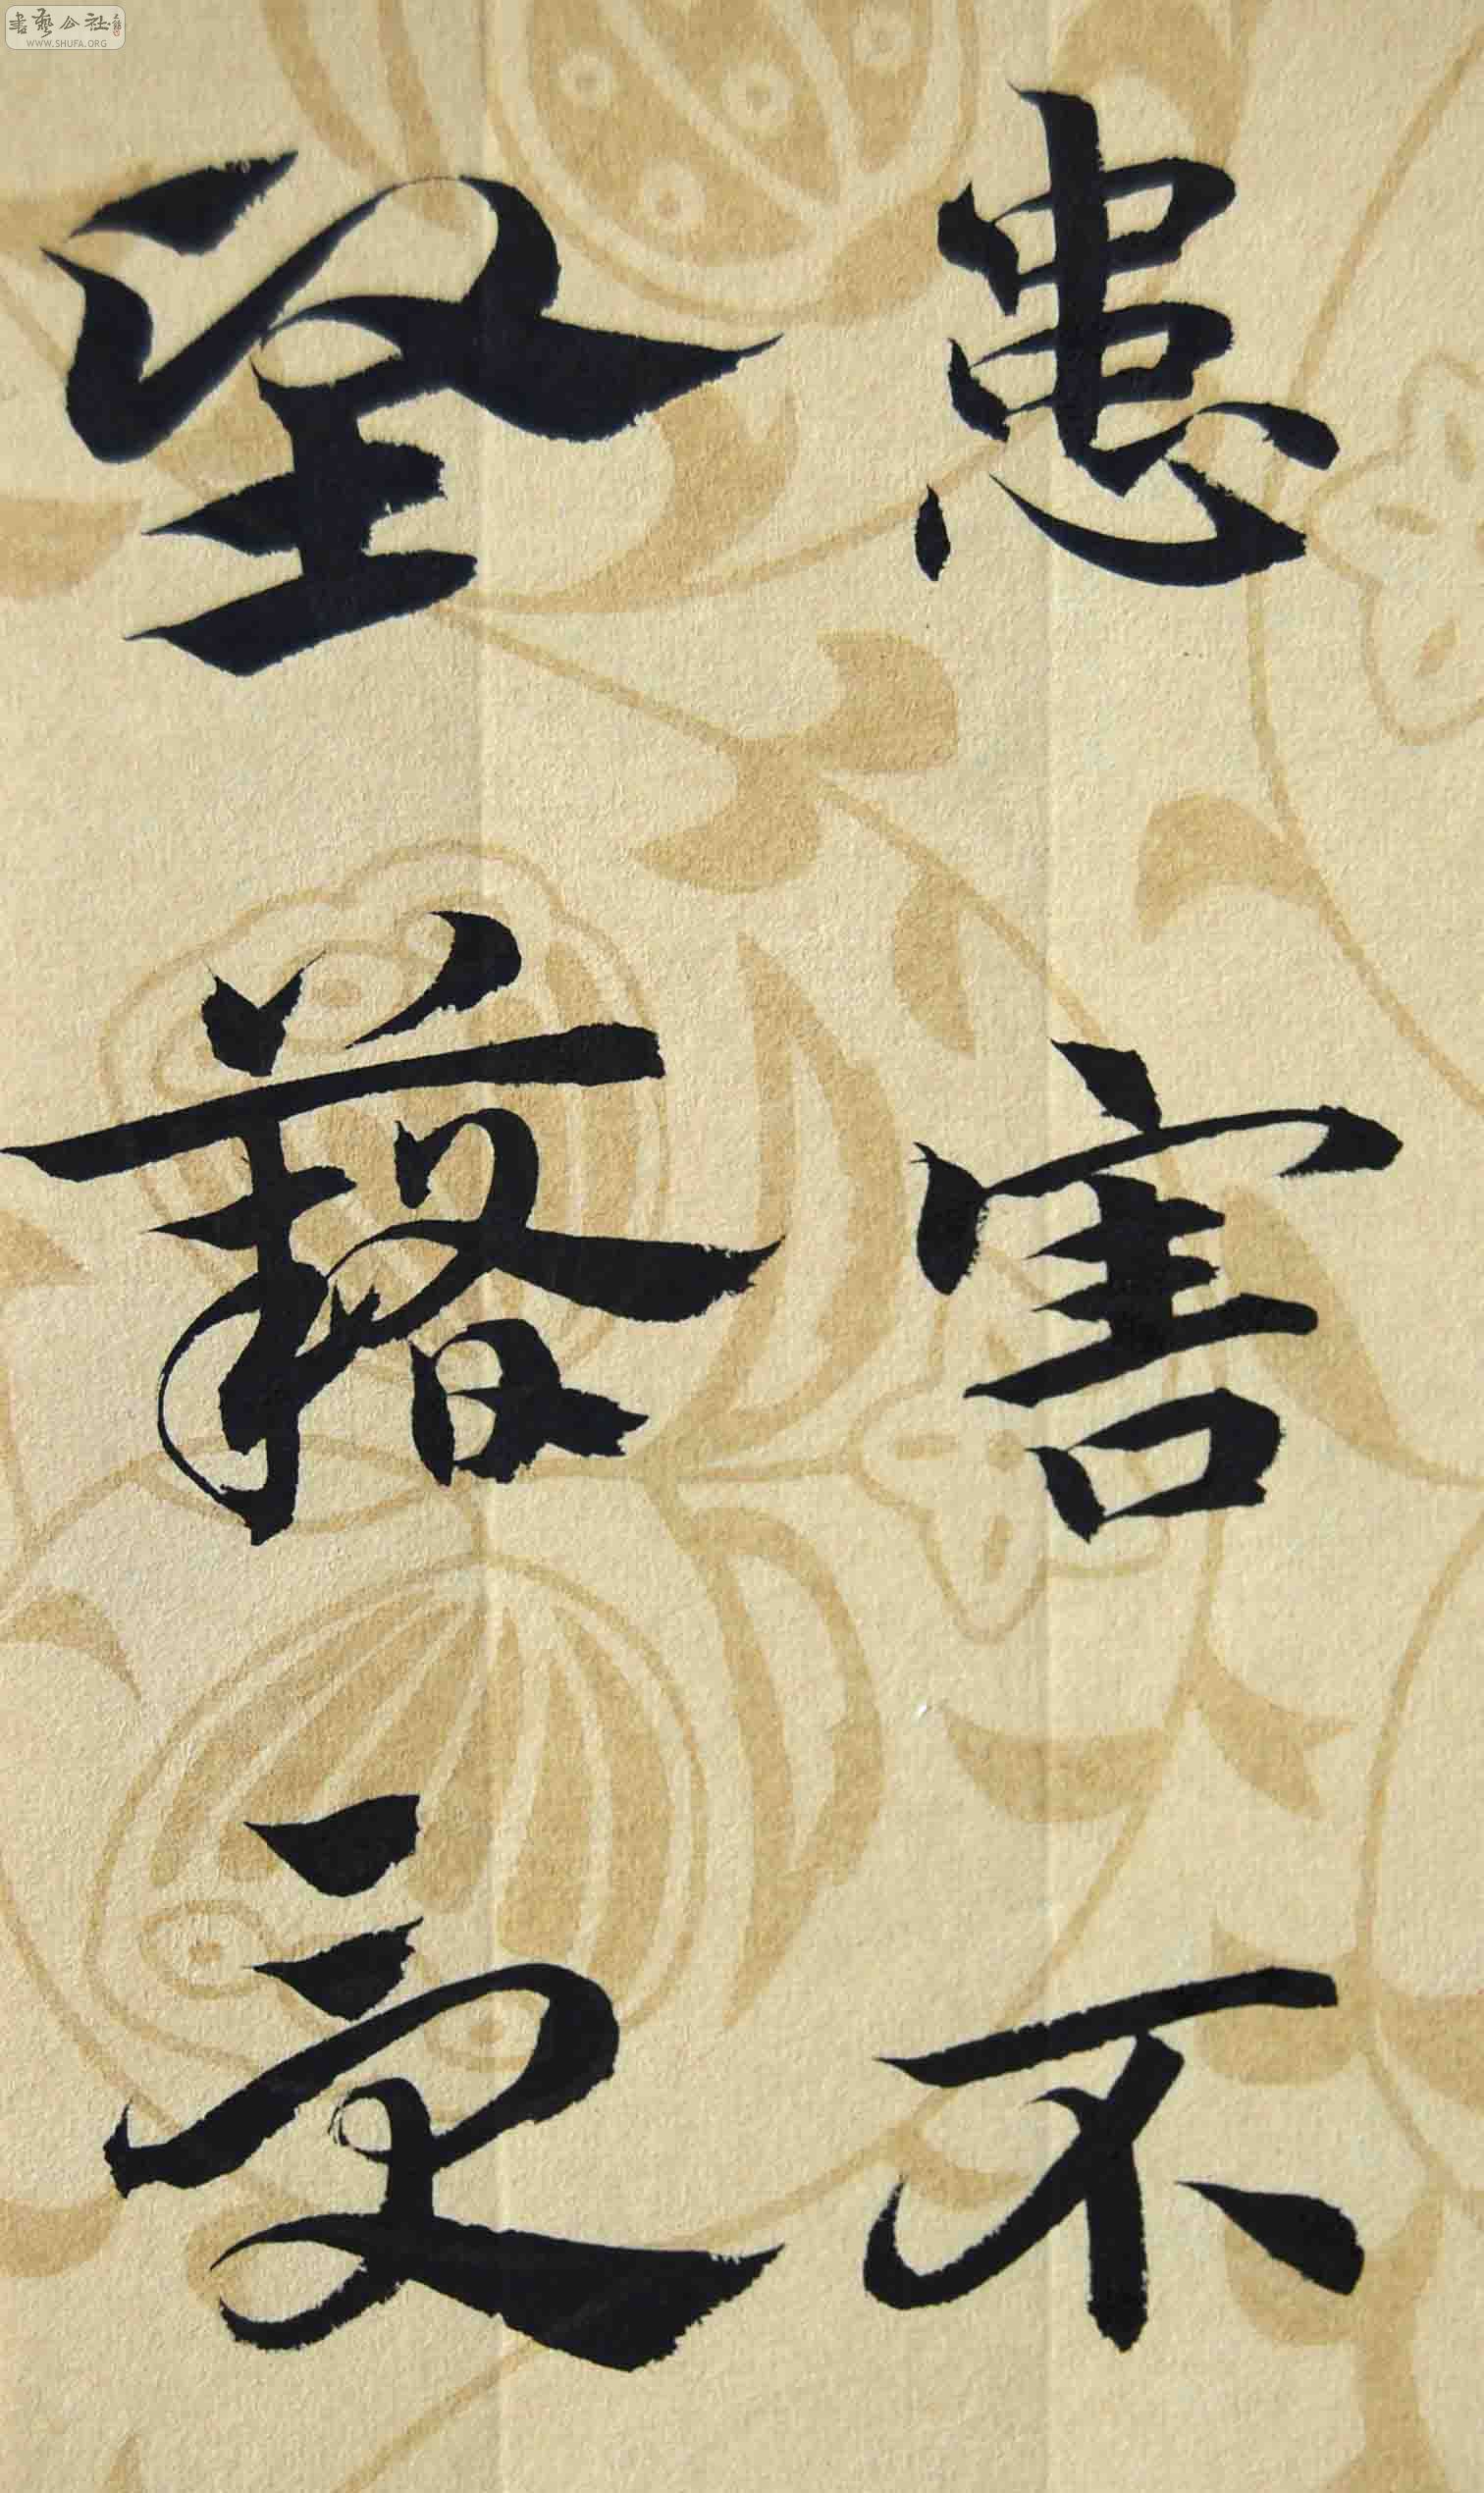 書藝公社
WWW.SHUFA.ORG
患害不
堅藉受